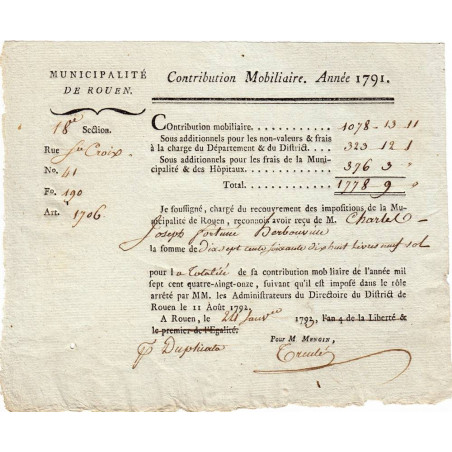 MUNICIPALITÉ
DE ROUEN.
Contribution Mobiliaire. Année 1791.
18e Section.
Rue Ste Croix
No. 41
Fo. 190
Art. 1706
Contribution mobiliaire............ 1078-13-11
Sous additionnels pour les non-valeurs & frais
à la charge du Département & du District..... 323 12 1
Sous additionnels pour les frais de la Muni-
cipalité & des Hôpitaux............ 376 3 "
Total............ 1778 9 "
Je soussigné, chargé du recouvrement des impositions, de la Mu-
nicipalité de Rouen, reconnois avoir reçu de M. Charles
Joseph fortuné Herbouville
la somme de Dix sept cents soixante dix huit livres neuf sol
pour la totalité de sa contribution mobiliaire de l'année mil
sept cent quatre-vingt-onze, suivant qu'il est imposé dans le rôle
arrêté par MM. les Administrateurs du Directoire du District de
Rouen le 11 Août 1792.
A Rouen, le 24 Janvier 1793, l'an 4 de la Liberté &
le premier de l'Egalité.
Pour M. MENOIX,
p Duplicata